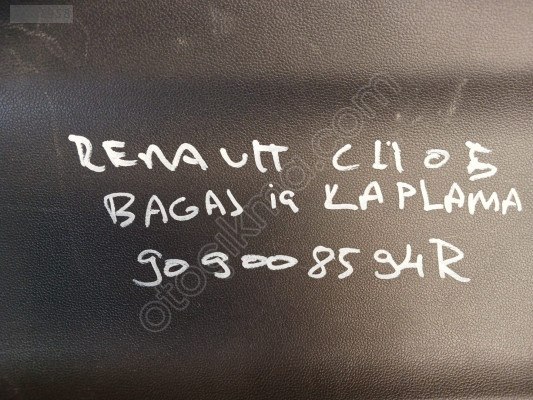 RENAULT CLIO 5
BAGAJ iç KAPLAMA
909008594R
otocikma.com